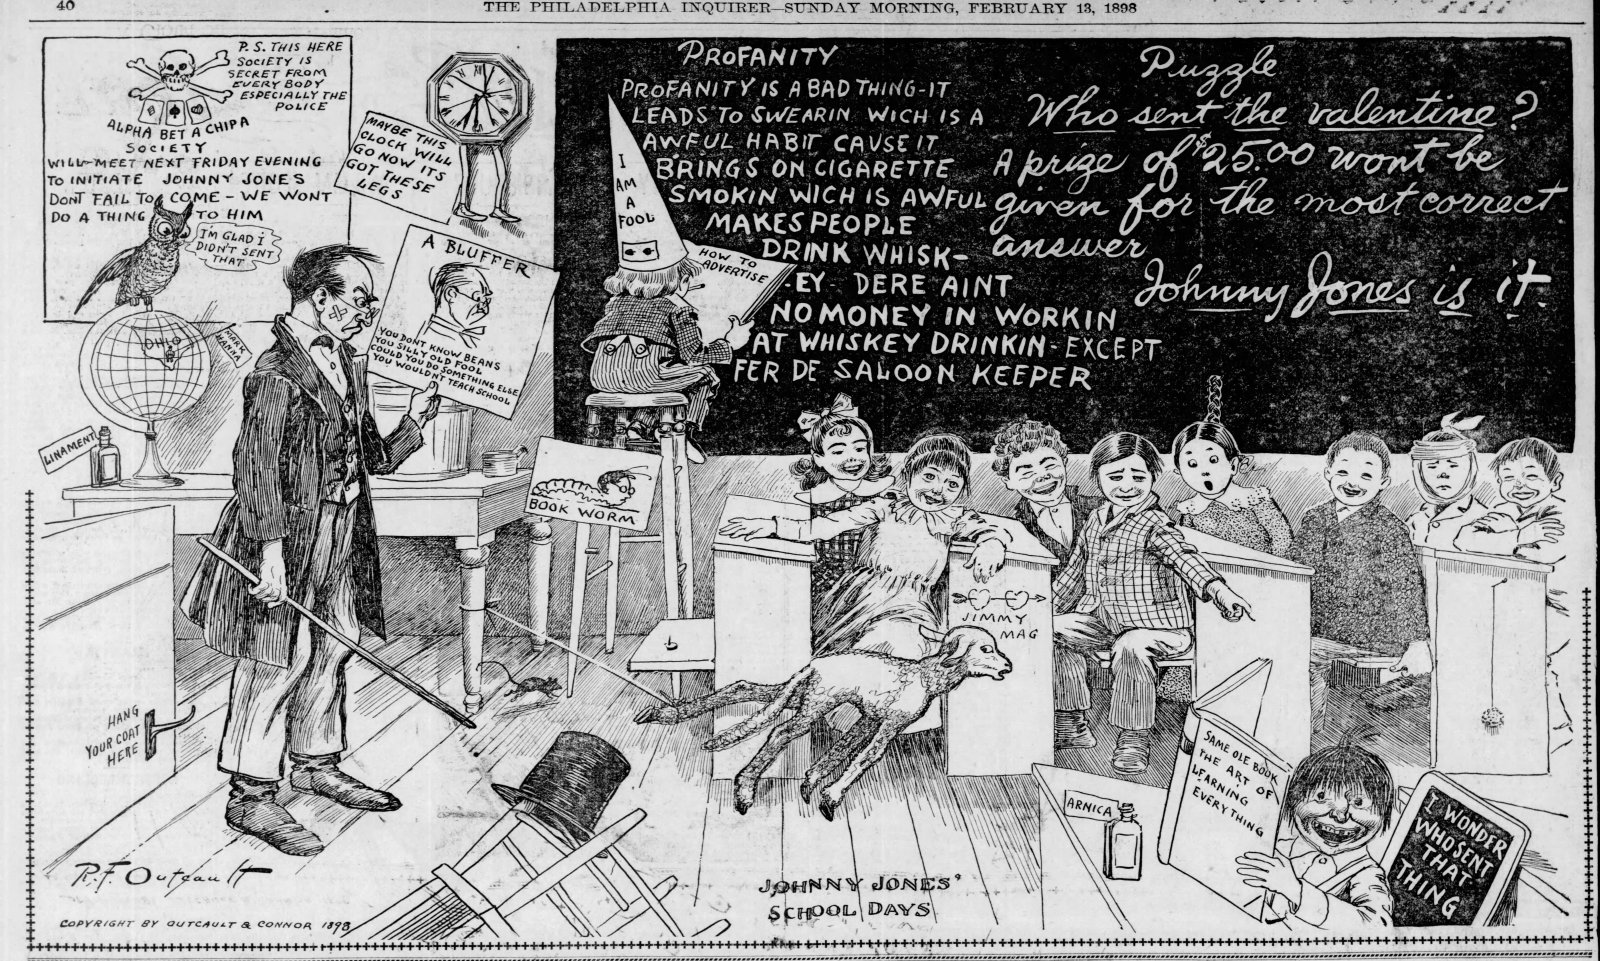 40
THE PHILADELPHIA INQUIRER—SUNDAY MORNING, FEBRUARY 13, 1898
P.S. THIS HERE
SOCIETY IS
SECRET FROM
EVERY BODY
ESPECIALLY THE
POLICE
ALPHA BET A CHIPA
SOCIETY
WILL MEET NEXT FRIDAY EVENING
TO INITIATE JOHNNY JONES
DONT FAIL TO COME - WE WONT
DO A THING TO HIM
I'M GLAD I
DIDN'T SENT
THAT
MAYBE THIS
CLOCK WILL
GO NOW ITS
GOT THESE
LEGS
A BLUFFER
YOU DONT KNOW BEANS
YOU SILLY OLD FOOL
COULD YOU DO SOMETHING ELSE
YOU WOULDN'T TEACH SCHOOL
OHIO
MARK
HANNA
LINAMENT
I
AM
A
FOOL
HOW TO
ADVERTISE
PROFANITY
PROFANITY IS A BAD THING-IT
LEADS TO SWEARIN WICH IS A
AWFUL HABIT CAUSE IT
BRINGS ON CIGARETTE
SMOKIN WICH IS AWFUL
MAKES PEOPLE
DRINK WHISK-
-EY- DERE AINT
NO MONEY IN WORKIN
AT WHISKEY DRINKIN- EXCEPT
FER DE SALOON KEEPER
Puzzle
Who sent the valentine?
A prize of $25.00 wont be
given for the most correct
answer
Johnny Jones is it.
BOOK WORM
JIMMY
MAG
HANG
YOUR COAT
HERE
ARNICA
SAME OLE BOOK
THE ART OF
LEARNING
EVERYTHING
I WONDER
WHO SENT
THAT
THING
R.F. Outcault
COPYRIGHT BY OUTCAULT & CONNOR 1898
JOHNNY JONES'
SCHOOL DAYS